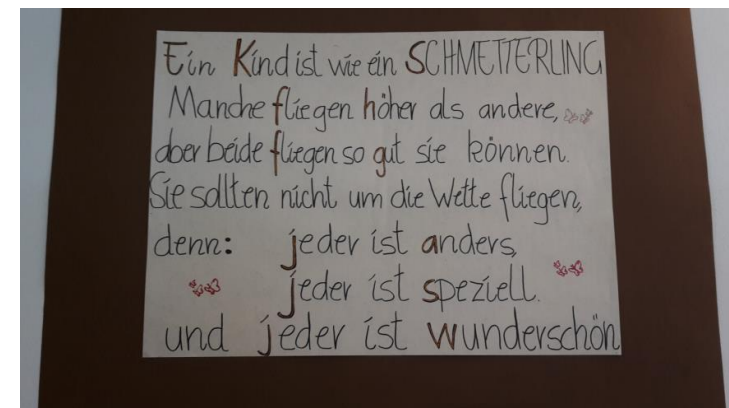 Ein Kind ist wie ein SCHMETTERLING
Manche fliegen höher als andere,
aber beide fliegen so gut sie können.
Sie sollten nicht um die Wette fliegen,
denn: jeder ist anders,
jeder ist speziell.
und jeder ist wunderschön